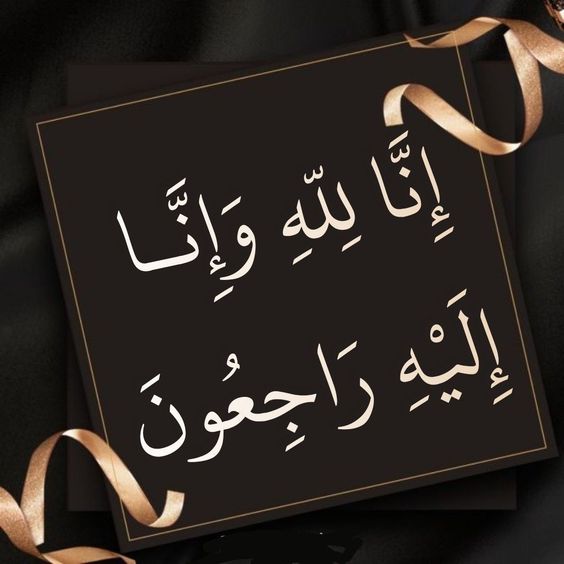 إِنَّا لِلّهِ وَإِنَّـا
إِلَيْهِ رَاجِعُونَ